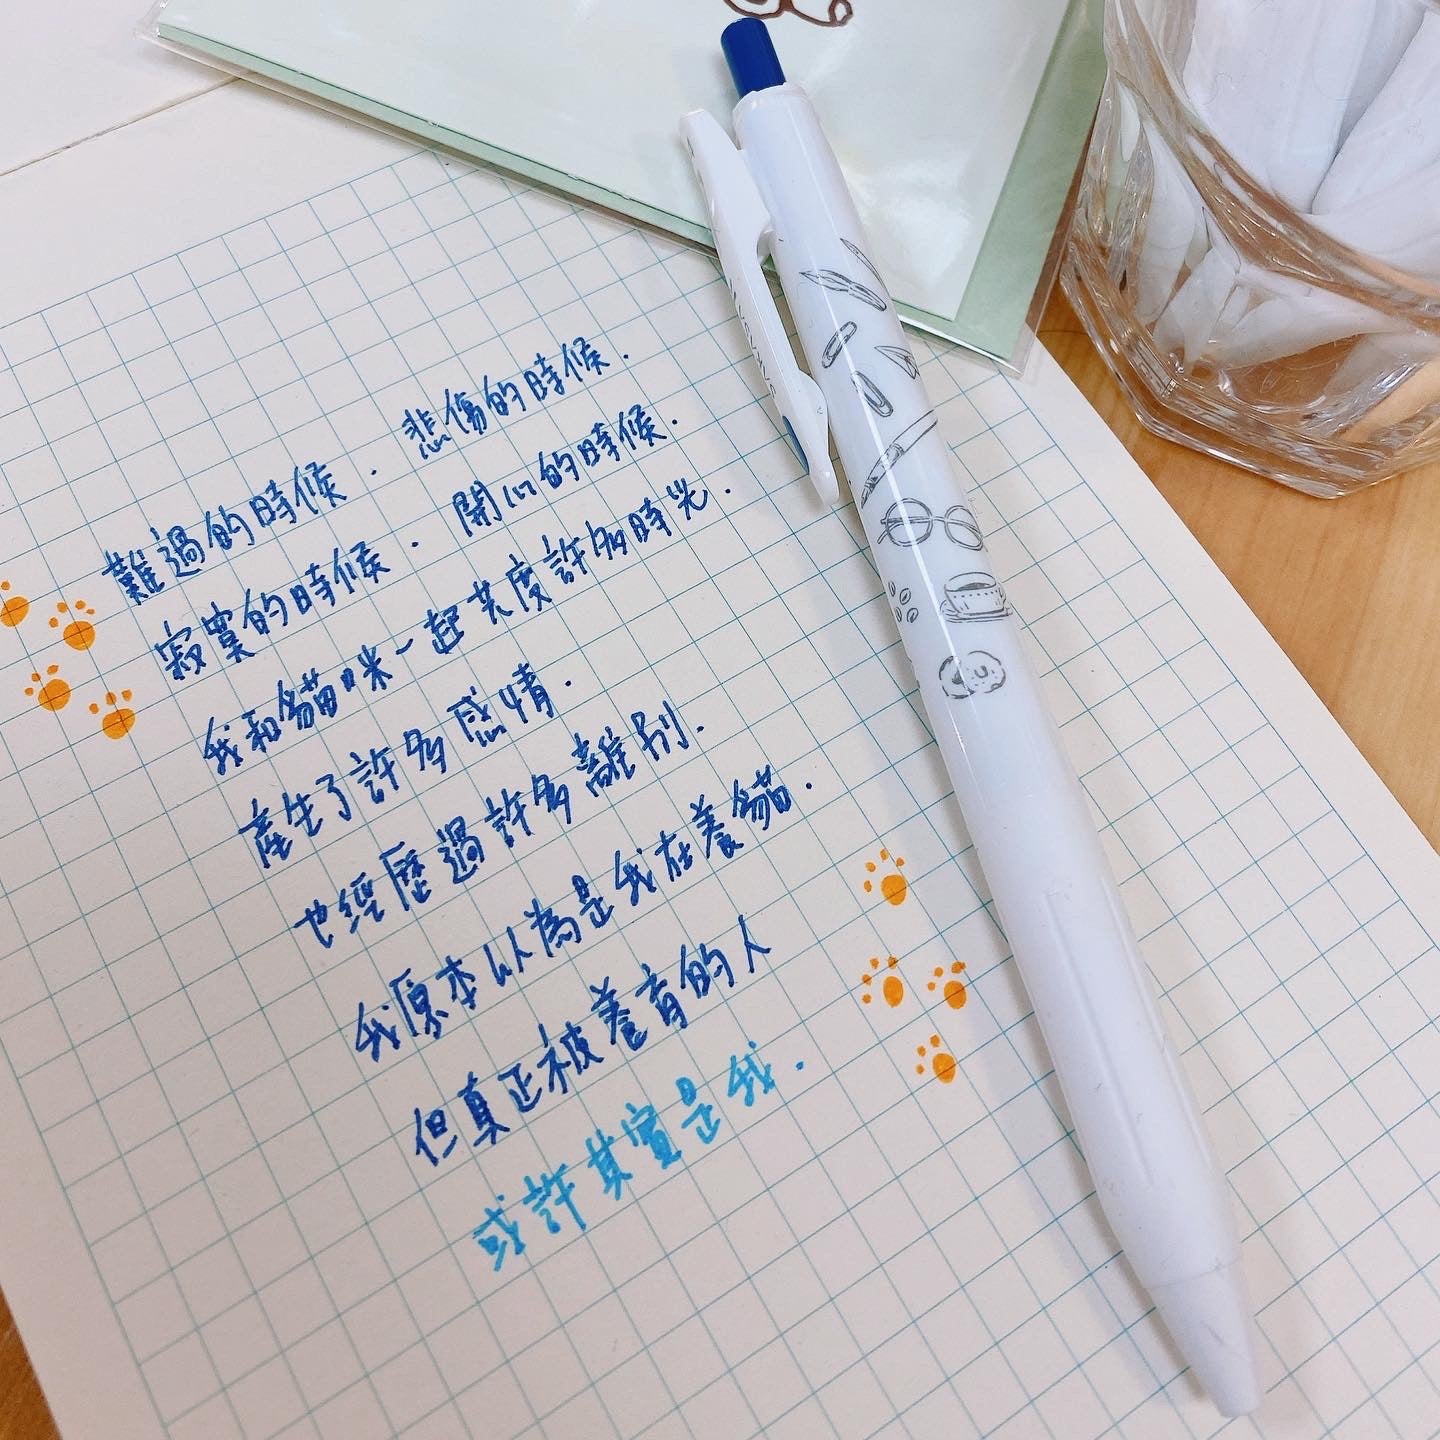 難過的時候.悲傷的時候.
寂寞的時候.開心的時候.
我和貓咪一起共度許多時光.
產生了許多感情.
也經歷過許多離別.
我原本以為是我在養貓.
但真正被養育的人
或許其實是我.
SAKAMOTO